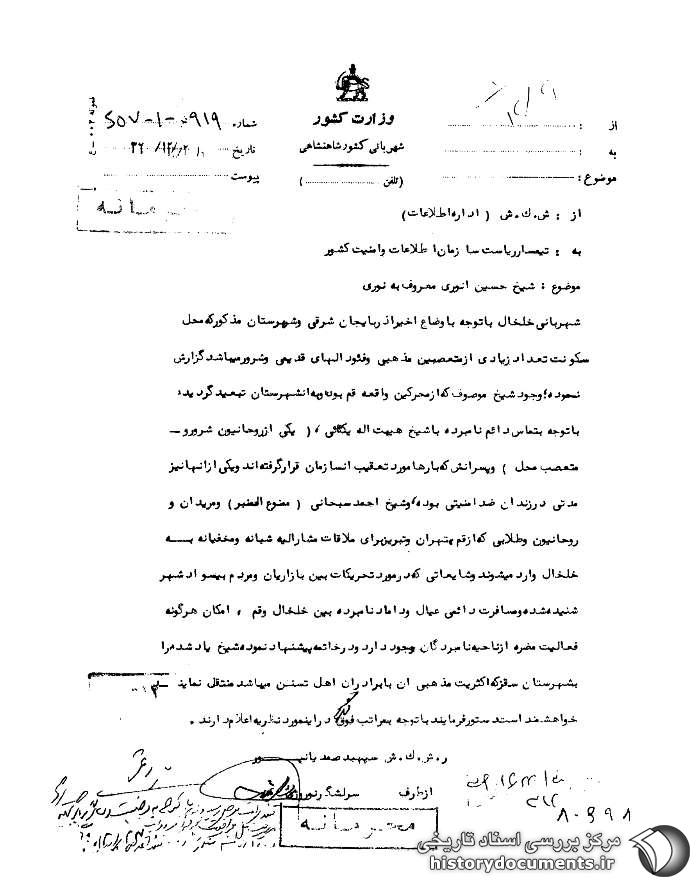 وزارت کشور
شهربانی کشور شاهنشاهی
(تلفن ..................)
شماره
تاریخ
پیوست
از :
به :
موضوع :
محرمانه
از : ش.ك.ش ( اداره اطلاعات )
به : تیمسار ریاست سازمان اطلاعات وامنیت کشور
موضوع : شیخ حسین انوری معروف به نوری
شهربانی خلخال باتوجه باوضاع اخیر اذربایجان شرقی وشهرستان مذکور که محل
سکونت تعداد زیادی ازمتعصبین مذهبی وفئودالهای قدیمی وشرور میباشد گزارش
نموده، وجود شیخ موصوف که ازمحرکین واقعه قم بوده وبه انشهرستان تبعید گردیده
باتوجه بتماس دائم نامبرده باشیخ هیبت اله یکتائی ، ( یکی از روحانیون شرور و ــ
متعصب محل ) وپسرانش که بارها مورد تعقیب انسازمان قرار گرفته اند ویکی ازانها نیز
مدتی در زندان ضد امنیتی بوده، وشیخ احمد سبحانی ( ممنوع المنبر ) ومریدان و
روحانیون وطلابی که ازقم وتهران وتبریز برای ملاقات مشارالیه شبانه ومخفیانه بـــه
خلخال وارد میشوند وشایعاتی که درمورد تحریکات بین بازاریان ومردم بیسواد شهر
شنیده شده ومسافرت دائمی عیال وداماد نامبرده بین خلخال وقم ، امکان هرگونه
فعالیت مضره ازناحیه نامبردگان وجود دارد ودرخاتمه پیشنهاد نموده شیخ یاد شده را
بشهرستان سقز که اکثریت مذهبی ان بابرادران اهل تسنن میباشد منتقل نمایند
خواهشمند است دستور فرمایند باتوجه بمراتب فوق دراینمورد نظریه اعلام دارند .
ر.ش.ك.ش سپهبد صمدیانپـــور
ازطرف سرلشگر
محرمانه
۸۰۶۹۸
مرکز بررسی اسناد تاریخی
historydocuments.ir